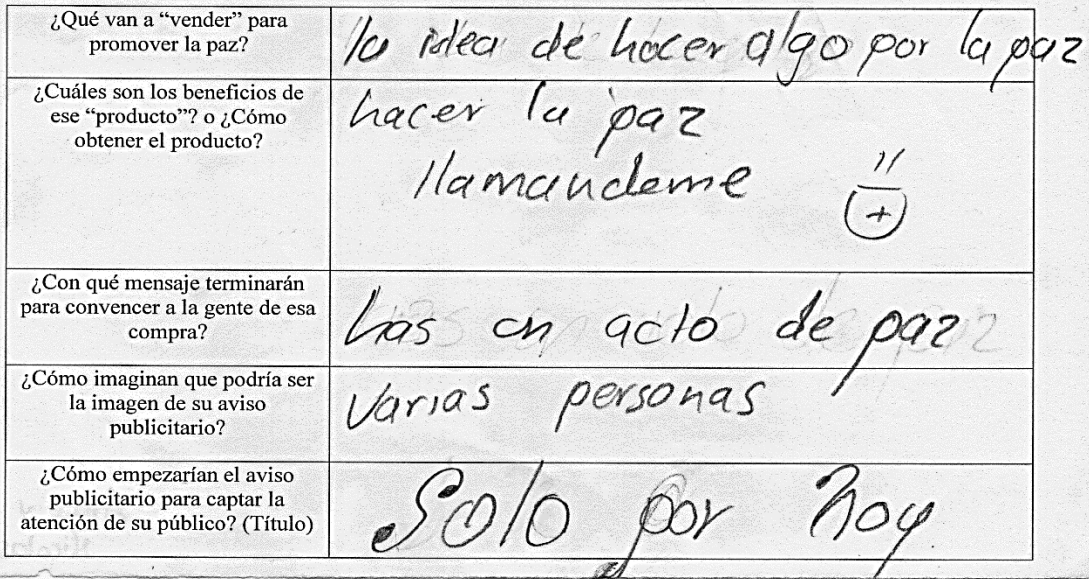 ¿Qué van a “vender” para
promover la paz?
la idea de hacer algo por la paz
¿Cuáles son los beneficios de
ese “producto”? o ¿Cómo
obtener el producto?
hacer la paz
llamandeme
¿Con qué mensaje terminarán
para convencer a la gente de esa
compra?
has un acto de paz
¿Cómo imaginan que podría ser
la imagen de su aviso
publicitario?
Varias personas
¿Cómo empezarían el aviso
publicitario para captar la
atención de su público? (Título)
Solo por hoy